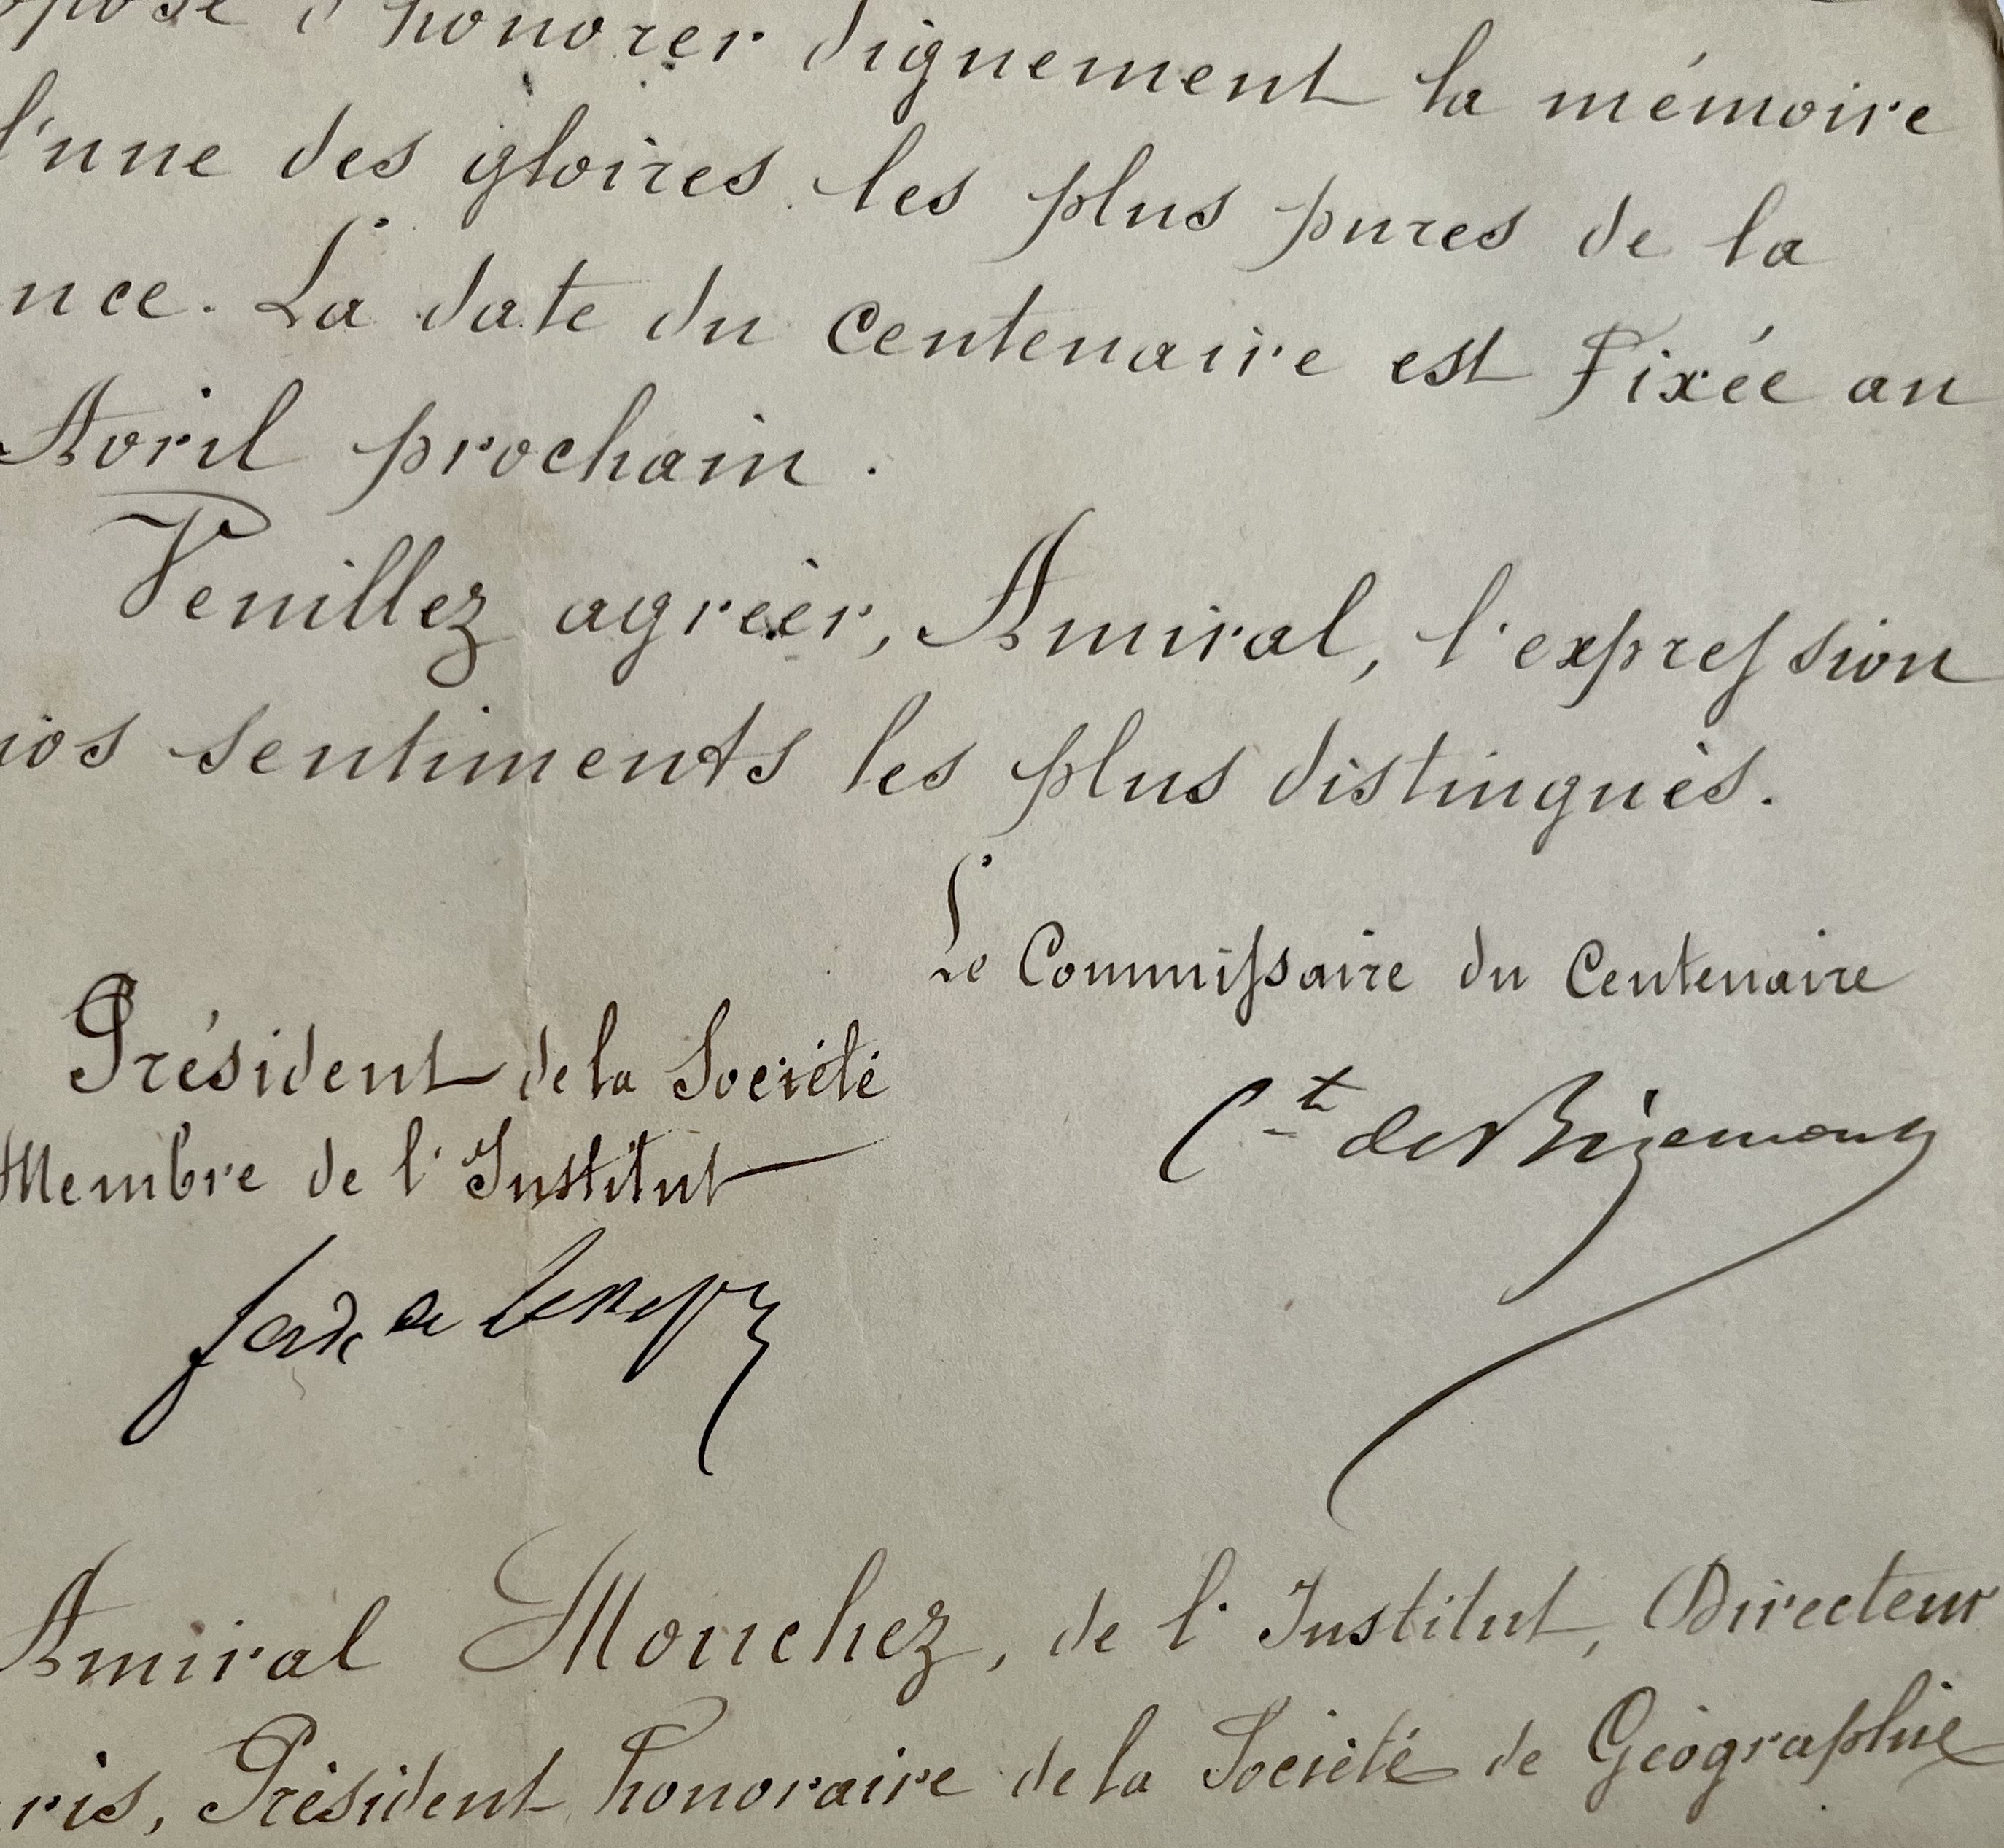 opose d'honorer dignement la mémoire
l'une des gloires les plus pures de la
nce. La date du Centenaire est Fixée au
Avril prochain.
Veuillez agréer, Amiral, l'expression
nos sentiments les plus distingués.
Le Commissaire du Centenaire
Président de la Société
Membre de l'Institut
Ct de Bizemont
Ferd. de Lesseps
Amiral Mouchez, de l'Institut, Directeur
ris, Président honoraire de la Société de Géographie